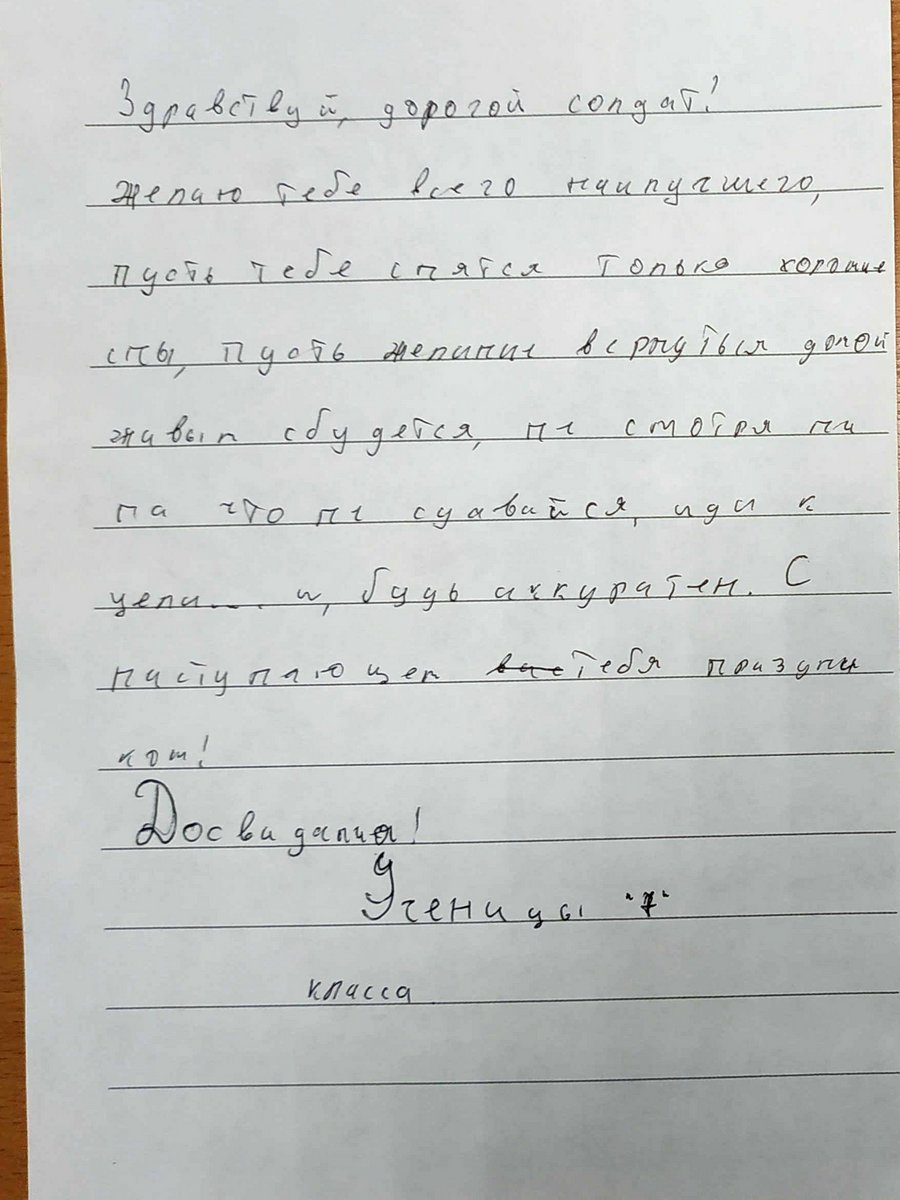 Здравствуй, дорогой солдат!
Желаю тебе всего наилучшего,
пусть тебе снятся только хорошие
сны, пусть желание вернуться домой
живым сбудется, не смотря ни
на что не сдавайся, иди к
цели.... и, будь аккуратен. С
наступающем вас тебя праздни
ком!
Досвидания!
Ученицы "7"
класса